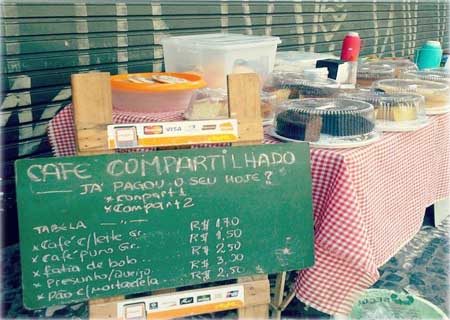 VISA
CAFE COMPARTILHADO
JÁ PAGOU O SEU HOJE?
* Compart 1
* Compart 2
TABELA
* Café c/leite Gr. R$ 1,70
* Café puro Gr. R$ 1,50
* fatia de bolo R$ 2,50
* Presunto/Queijo R$ 3,00
* Pão c/ mortadela R$ 2,50